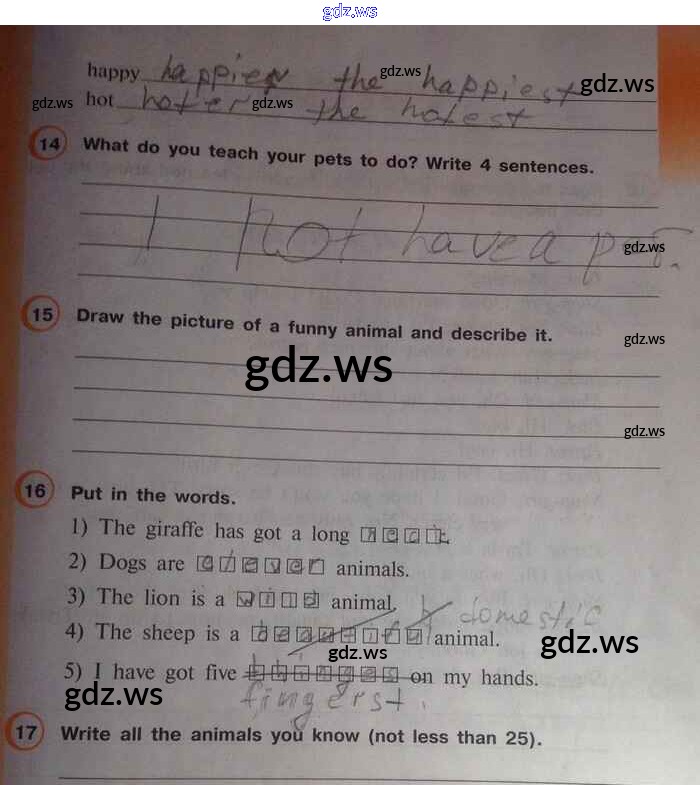 gdz.ws
happy happier the happiest
gdz.ws gdz.ws
hot hoter the hotest
gdz.ws gdz.ws
14 What do you teach your pets to do? Write 4 sentences.
I not have a pet.
gdz.ws
15 Draw the picture of a funny animal and describe it.
gdz.ws
gdz.ws
gdz.ws
16 Put in the words.
1) The giraffe has got a long neck.
2) Dogs are clever animals.
3) The lion is a wild animal.
domestic
4) The sheep is a animal.
gdz.ws gdz.ws
5) I have got five on my hands.
gdz.ws
fingerst.
17 Write all the animals you know (not less than 25).